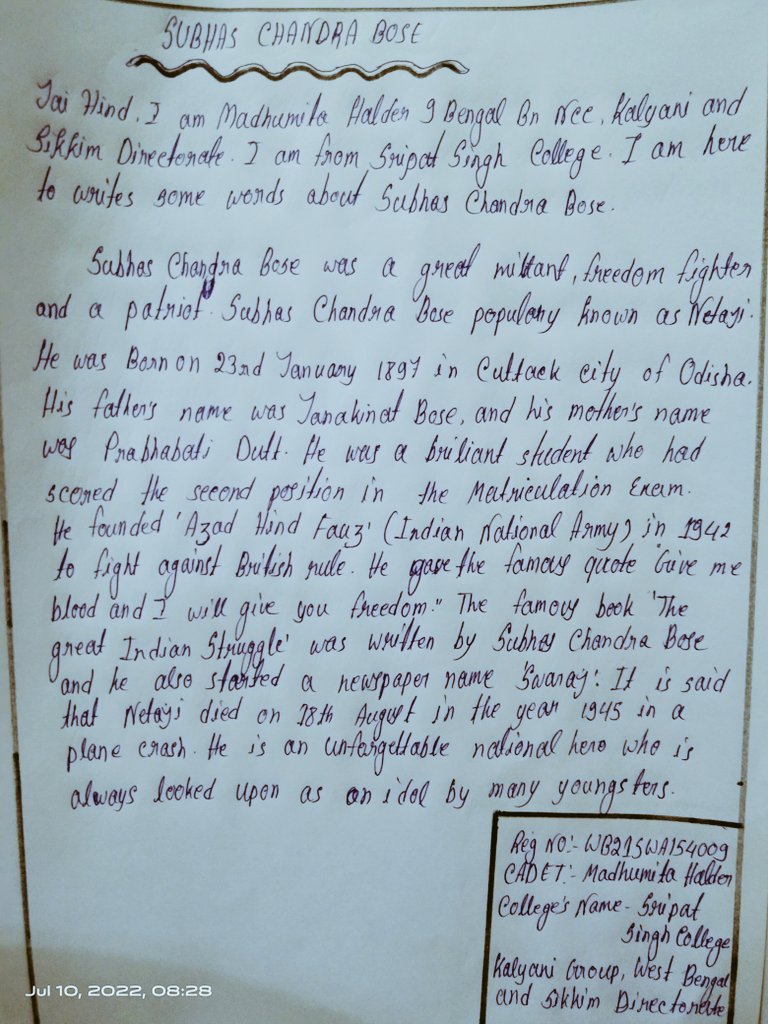 SUBHAS CHANDRA BOSE
Jai Hind, I am Madhumita Halder 9 Bengal Bn Ncc, Kalyani and
Sikkim Directorate. I am from Sripat Singh College. I am here
to writes some words about Subhas Chandra Bose.
Subhas Chandra Bose was a great militant, freedom fighter
and a patriot. Subhas Chandra Bose populary known as Netaji.
He was Born on 23rd January 1897 in Cuttack city of Odisha.
His father's name was Janakinat Bose, and his mother's name
was Prabhabati Dutt. He was a briliant student who had
scored the second position in the Matriculation Exam.
He founded 'Azad Hind Fauz' (Indian National Army) in 1942
to fight against British rule. He gave the famous quote "Give me
blood and I will give you freedom." The famous book 'The
great Indian Struggle' was written by Subhas Chandra Bose
and he also started a newspaper name 'Swaraj'. It is said
that Netaji died on 18th August in the year 1945 in a
plane crash. He is an unforgettable national hero who is
always looked upon as an idol by many youngsters.
Reg NO:- WB21SWA154009
CADET:- Madhumita Halder
College's Name- Sripat
Singh College
Kalyani Group, West Bengal
and Sikkim Directorate
Jul 10, 2022, 08:28